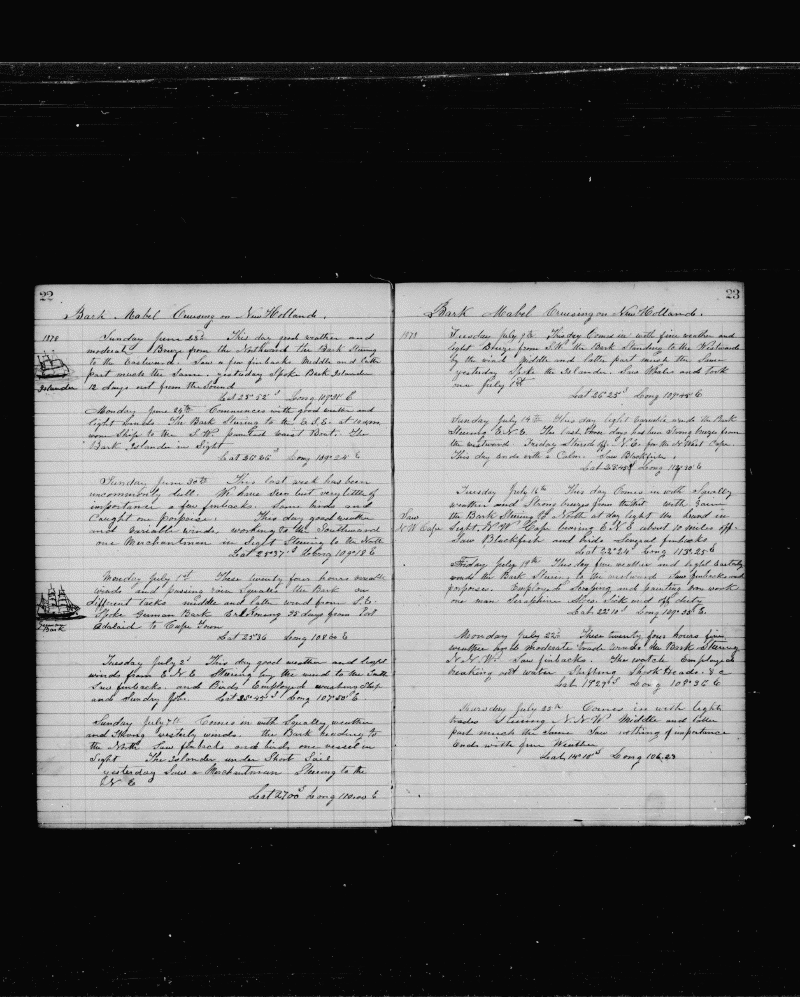 22
Bark Mabel Cruising on New Holland.
1878 Sunday June 23d This day good weather and
moderate Breeze from the Northward the Bark Steering
to the Eastward. Saw a few finbacks. Middle and latter
part much the Same. yesterday Spoke Bark Islander
Islander
12 days out from the Sound
Lat 25° 52' S Long 109° 31' E
Monday June 24th Commences with good weather and
light winds. The Bark Steering to the E.S.E. at 10 a.m.
wore Ship to the S.W. painted waist Boat. The
Bark Islander in Sight
Lat 26° 26' S Long 109° 24' E
Sunday June 30th This last week has been
uncommonly dull. We have Seen but very little of
importance a few finbacks. Some birds and
Caught one porpoise. This day good weather
and variable winds, working to the Southward
one Merchantman in Sight Steering to the North
Lat 25° 37' S Long 109° 18 E
Monday July 1st These twenty four hours
winds and passing rain Squalls the Bark on
different tacks middle and latter wind from S.E.
Spoke German Bark 35 days from Port
German Bark
Adelaid to Cape Town
Lat 25 36 Long 108 60 E
Tuesday July 2d This day good weather and light
winds from E.N.E. Steering by the wind to the South
Saw finbacks and Birds Employed washing Ship
and Sundry Jobs. Lat 25° 45' S Long 107° 50' E
Sunday July 7th Comes in with Squally weather
and Strong westerly winds. the Bark heading to
the North Saw finbacks and birds one vessel in
Sight The Islander under Short Sail
yesterday Saw a Merchantman Steering to the
E.N.E
Lat 27 00 S Long 110 00 E
23
Bark Mabel Cruising on New Holland.
1878 Tuesday July 9th This day Comes in with fine weather and
light Breeze from S.W. the Bark Standing to the Westward
by the wind middle and latter part much the Same
yesterday Spoke the Islander. Saw Whales and took
one July 1st
Lat 26° 25' S Long 109° 48' E
Sunday July 14th This day light variable winds the Bark
Steering E.N.E. The last three days has been Strong breeze from
the westward. Friday Steered off N.E. for the N. West Cape.
This day ends with a Calm. Saw Blackfish,
Lat 23° 43' S Long 112° 20' E
Tuesday July 16th This day Comes in with Squally
weather and Strong breezes from the West with rain
Saw
the Bark Steering off North at day light the land in
N W Cape
Sight, N.W. Cape bearing E.N.E. about 10 miles off
Saw Blackfish and birds Several finbacks
Lat 22° 24' Long 113° 25' E
Friday July 19th This day fine weather and light Easterly
winds the Bark Steering to the westward Saw finbacks and
porpoises. Employed Scraping and painting iron work
one man Seraphine Sick and off duty
Lat 22° 10' Long 109° 33' E.
Monday July 22d These twenty four hours fine
weather and moderate trade winds the Bark Steering
N.N.W. Saw finbacks. The watch Employed
breaking out water Shifting Shook Heads. & c
Lat 19° 27' S Long 108° 36 E
Thursday July 25th Comes in with light
trades Steering N.N.W. Middle and latter
part much the Same Saw nothing of importance
Ends with fine Weather
Lat 14° 18' S Long 106.23